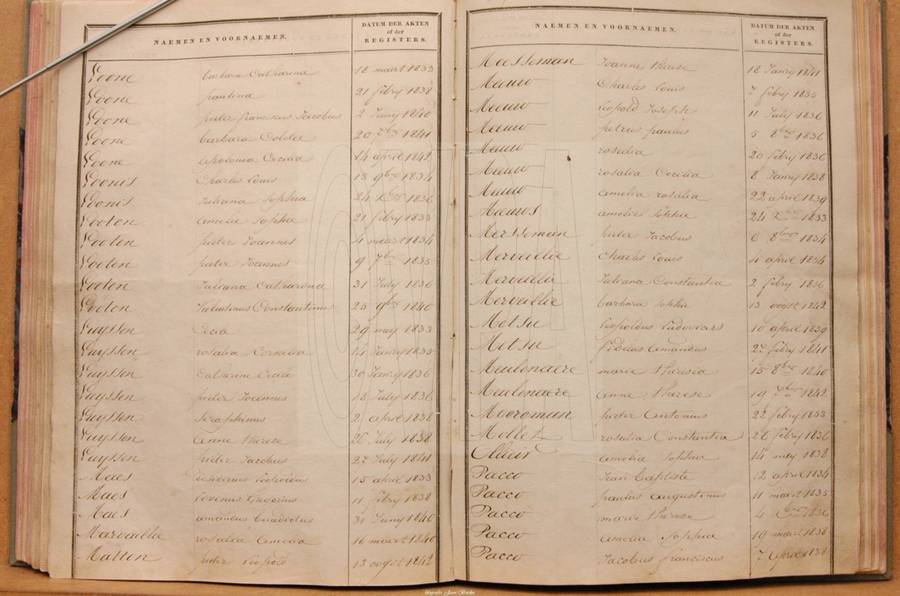 NAEMEN EN VOORNAEMEN.
DATUM DER AKTEN
of der
REGISTERS.
Loone barbara Catharina 18 maart 1833
Loone paulina 21 febry 1838
Loone pieter franciscus Jacobus 2 Juny 1840
Loone barbara 20 7bre 1841
Loone apolonia Cecilia 14 april 1842
Loonis Charles Louis 18 9bre 1834
Loonis Juliana Sophia 24 Xbre 1836
Looten amelie Sophie 21 febry 1833
Looten pieter Joannes 4 maart 1834
Looten pieter Joannes 9 7bre 1835
Looten Juliana Catharina 31 July 1836
Looten Constantinus 25 9bre 1840
Luyssen Cecilia 29 mey 1833
Luyssen rosalia Cornelia 14 January 1835
Luyssen Catharine Cecilia 30 January 1836
Luyssen pieter Joannes 18 July 1836
Luyssen Seraphinus 2 april 1838
Luyssen anne therese 26 July 1838
Luyssen pieter Jacobus 27 July 1841
Maes 15 april 1833
Maes 11 febry 1838
Maes amandus 31 Juny 1840
Marveillie rosalia amelia 16 maart 1840
Matten pieter 13 oogst 1842
NAEMEN EN VOORNAEMEN.
DATUM DER AKTEN
of der
REGISTERS.
Maesseman Joanne therese 18 Janry 1841
Meeuw Charles Louis 7 febry 1835
Meeuw leopold Josephe 11 July 1836
Meeuw petrus paulus 5 8bre 1836
Meeuw rosalia 20 febry 1836
Meeuw rosalia Cecilia 8 Janry 1838
Meeuw amelia rosalia 22 april 1839
Meeuws amelie Sophie 24 Xbre 1833
Mersseman pieter Jacobus 6 8bre 1834
Merveillie Charles Louis 4 april 1834
Merveillie Juliana Constantia 2 febry 1836
Merveillie barbara Sophie 13 oogst 1842
Metsu leopoldus Ludovicus 10 april 1839
Metsu fidelis amandus 27 febry 1841
Meulenaere marie theresia 15 8bre 1840
Meulenaere anne therese 19 7bre 1842
Moerman pieter Antonius 22 febry 1833
Mollet rosalia Constantia 26 febry 1836
amelie Sophie 14 mey 1838
Pacco Jean Baptiste 12 april 1834
Pacco paulus augustinus 11 maart 1835
Pacco marie therese 4 1836
Pacco amelie Sophia 19 maart 1836
Pacco Jacobus franciscus 7 april 1838